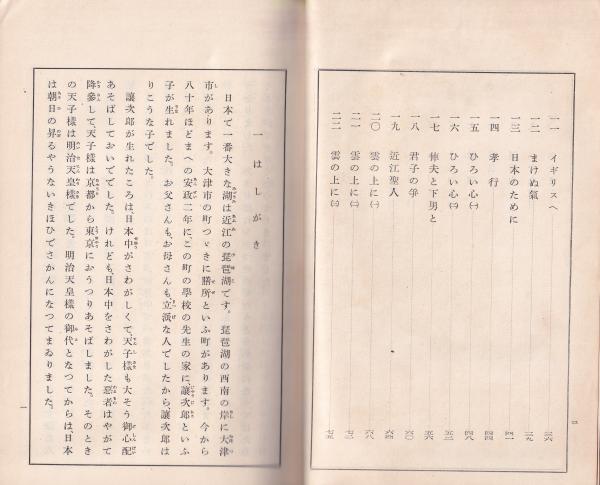 一一　イギリスへ　三六
一二　まけぬ氣　三九
一三　日本のために　四一
一四　孝行　四四
一五　ひろい心(一)　四八
一六　ひろい心(二)　五二
一七　俥夫と下男と　五六
一八　君子の爭　六〇
一九　近江聖人　六四
二〇　雲の上に(一)　六八
二一　雲の上に(二)　七二
二二　雲の上に(三)　七五
一　はしがき
日本で一番大きな湖は近江の琵琶湖です。琵琶湖の西南の岸に大津
市があります。大津市の町つゞきに膳所といふ町があります。今から
八十年ほどまへの安政二年に、この町の學校の先生の家に、讓次郎といふ
子が生れました。お父さんも、お母さんも、立派な人でしたから、讓次郎は
りこうな子でした。
讓次郎が生れたころは日本中がさわがしくて、天子樣も大そう御心配
あそばしておいででした。けれども、日本中をさわがした惡者はやがて
降參して天子樣は京都から東京におうつりあそばしました。そのとき
の天子樣は明治天皇樣でした。明治天皇樣の御代となつてからは、日本
は朝日の昇るやうないきほひでさかんになつてまゐりました。
一